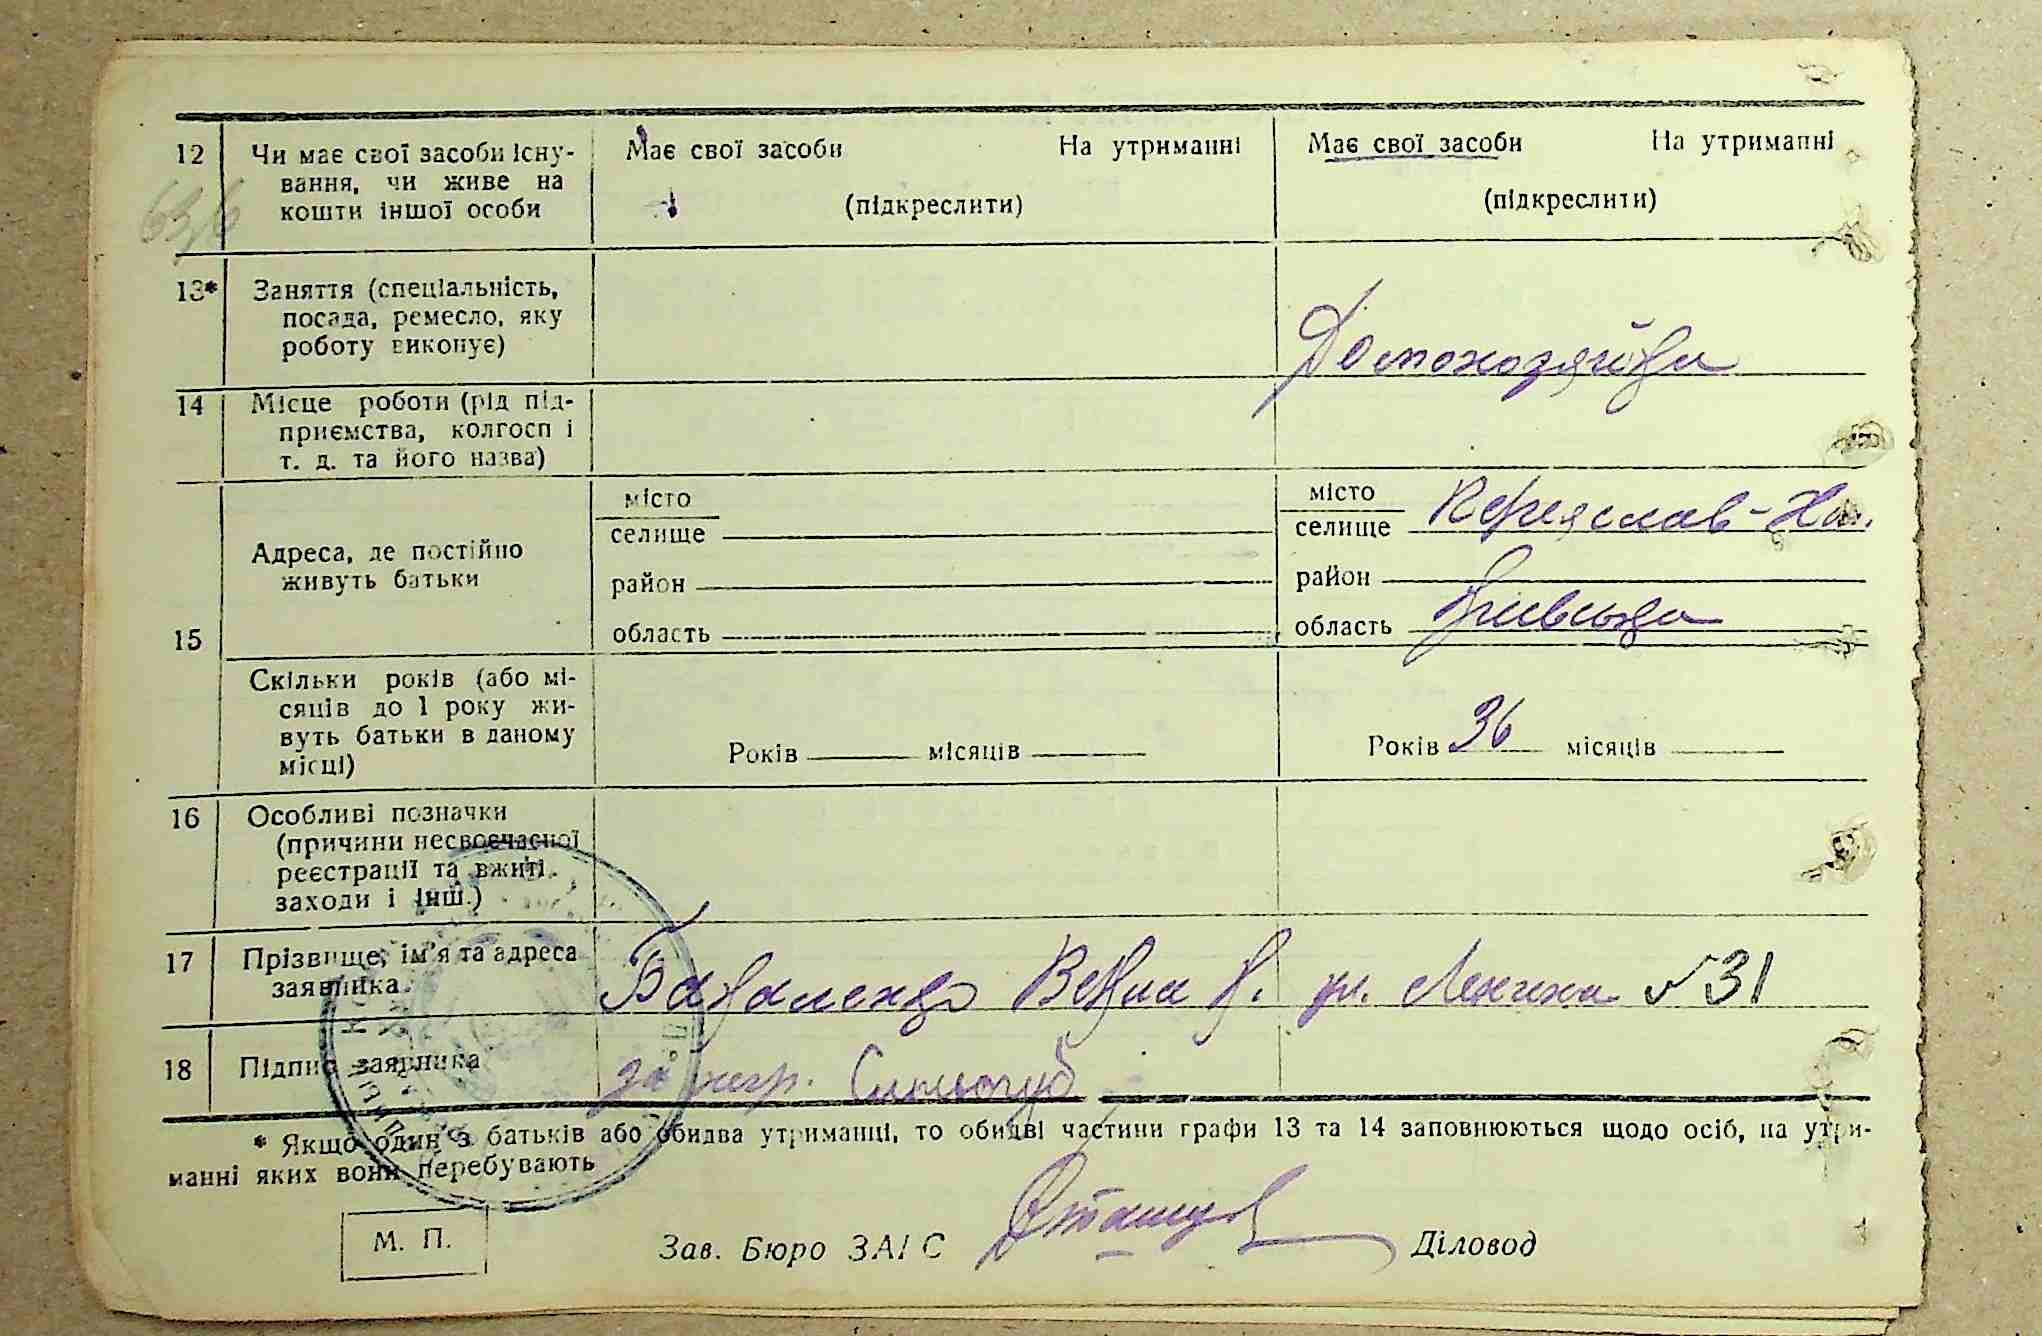 12 Чи має свої засоби існу-
вання, чи живе на
кошти іншої особи
Має свої засоби На утриманні
(підкреслити)
Має свої засоби На утриманні
(підкреслити)
13* Заняття (спеціальність,
посада, ремесло, яку
роботу виконує)
Домохозяйка
14 Місце роботи (рід під-
приємства, колгосп і
т. д. та його назва)
15
Адреса, де постійно
живуть батьки
місто
селище
район
область
місто
селище Переяслав-Хм.
район
область Київська
Скільки років (або мі-
сяців до 1 року жи-
вуть батьки в даному
місці)
Років місяців
Років 36 місяців
16 Особливі позначки
(причини несвоєчасної
реєстрації та вжиті
заходи і інш.)
17 Прізвище, ім'я та адреса
заявника
ул. Ленина №31
18 Підпис заявника
* Якщо один з батьків або обидва утриманці, то обидві частини графи 13 та 14 заповнюються щодо осіб, на утри-
манні яких вони перебувають
М. П.
Зав. Бюро ЗАГС Діловод